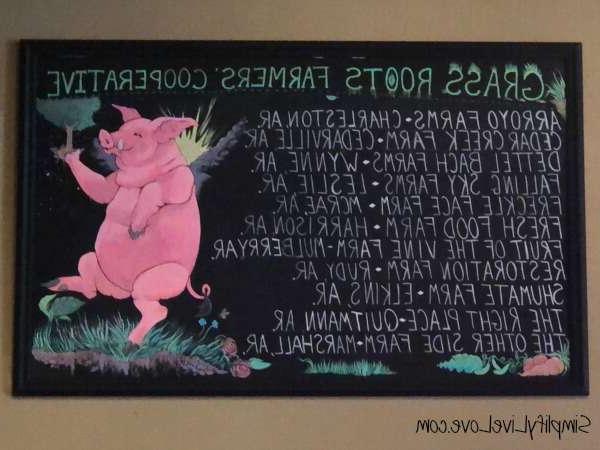 GRASS ROOTS FARMERS' COOPERATIVE
ARROYO FARMS•CHARLESTON AR.
CEDAR CREEK FARM•CEDARVILLE AR.
DETTEL BACH FARMS•WYNNE, AR.
FALLING SKY FARMS•LESLIE, AR.
FRECKLE FACE FARM•MCRAE, AR.
FRESH FOOD FARM•HARRISON AR.
FRUIT OF THE VINE FARM-MULBERRY AR.
RESTORATION FARM•RUDY AR.
SHUMATE FARM•ELKINS AR.
THE RIGHT PLACE•QUITMANN AR.
THE OTHER SIDE FARM•MARSHALL, AR.
SimplifyLiveLove.com